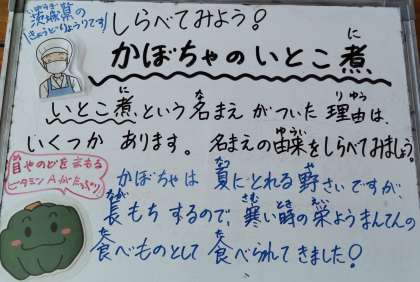 茨城県の
(きょうどりょうりです)
しらべてみよう！
かぼちゃのいとこ煮
いとこ煮、という名まえがついた理由は、
いくつかあります。名まえの由来をしらべてみましょう。
目やのどをまもる
ビタミンAがたっぷり
かぼちゃは夏にとれる野さいですが、
長もちするので、寒い時の栄ようまんてんの
食べものとして食べられてきました！